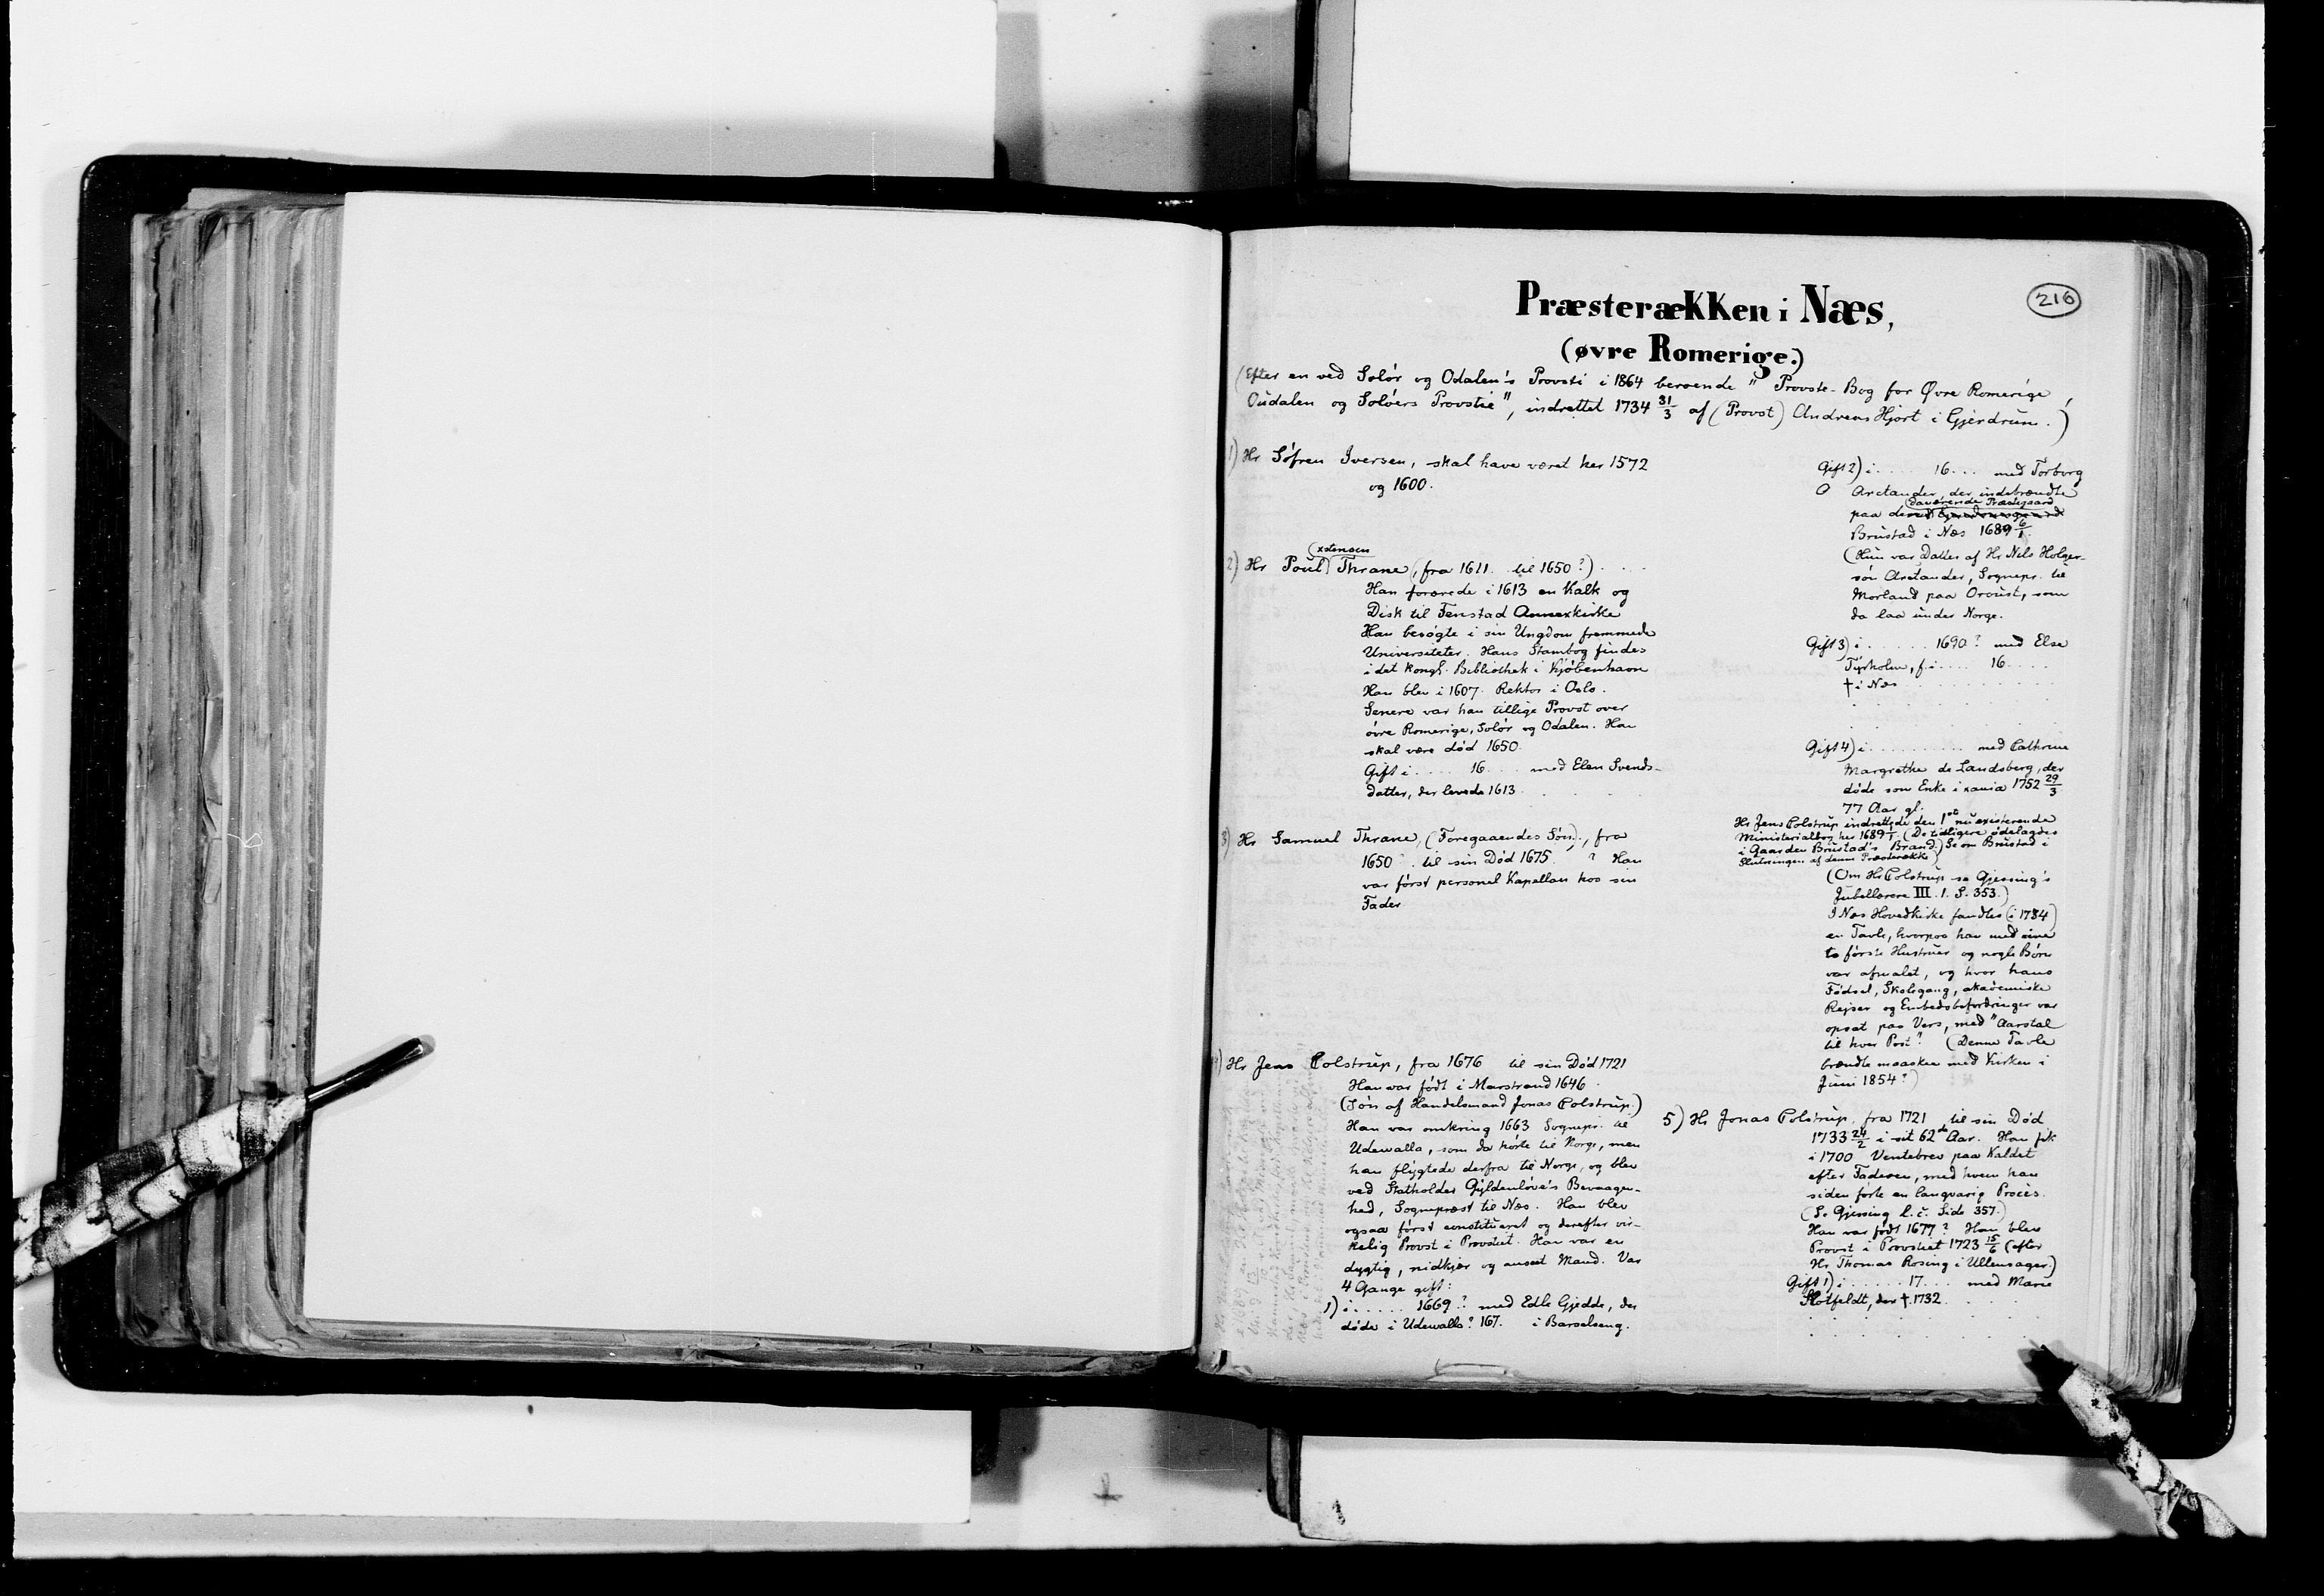 216
Præsterækken i Næs,
(øvre Romerige.)
(Efter en ved Solør og Odalen's Provsti i 1864 beroende "Provste-Bog for Øvre Romerige,
Oudalen og Soløers Provstie", indrettet 1734 31/3 af (Provst) Andreas Hjort i Gjerdrum.)
1) Hr Søfren Iversen, skal have været her 1572
og 1600.
(xstensen
2) Hr Poul Thrane, (fra 1611 til 1650?)
Han forærede i 1613 en Kalk og
Disk til Fenstad Annexkirke
Han besøgte i sin Ungdom fremmede
Universiteter. Hans Stambog findes
i det kongl. Bibliothek i Kjøbenhavn
Han blev i 1607 Rektor i Oslo.
Senere var han tillige Provst over
øvre Romerige, Solør og Odalen. Han
skal være død 1650.
Gift i ..... 16.... med Elen Svends-
datter, der levede 1613
3) Hr Samuel Thrane, (Foregaaendes Søn), fra
1650 til sin Død 1675 ? Han
var først personel Kapellan hos sin
Fader
4) Hr Jens Colstrup, fra 1676 til sin Død 1721
Han var født i Marstrand 1646.
(Søn af Handelsmand Jonas Colstrup.)
Han var omkring 1663 Sognepr. til
Udewalla, som da hørte til Norge, men
han flygtede derfra til Norge, og blev
ved Statholder Gyldenløve's Bevaagen-
hed, Sognepræst til Næs. Han blev
ogsaa først constitueret og derefter vir-
kelig Provst i Provstiet. Han var en
dygtig, nidkjær og anseet Mand. Var
4 Gange gift:
1) i ...... 1669? med Edle Gjedde, der
døde i Udewalla? 167. i Barselseng.
Gift 2) i ..... 16... med Torborg
O Arctander, der indebrændte
(daværende Præstegaard
paa
Brustad i Næs 1689 6/1.
(Hun var Datter af Hr Nels Holger-
søn Arctander, Sognepr. til
Morland paa Oroust, som
da laa under Norge.
Gift 3) i ...... 1690? med Else
Tyrholm, f. i .... 16....
† i Næs
Gift 4) i .......... med Cathrine
Margrethe de Landsberg, der
døde som Enke i xania 1752 29/3
77 Aar gl.
Hr Jens Colstrup indrettede den 1ste nu existerende
Ministerialbog her 1689 1/1 (De tidligere ødelagdes
i Gaarden Brustad's Brand.) Se om Brustad i
Slutningen af denne Præsterække)
(Om Hr Colstrup se Gjessing's
Jubellærere III. 1. S. 353.)
I Næs Hovedkirke fandtes (i 1734)
en Tavle, hvorpaa han med sine
to første Hustruer og nogle Børn
var afmalet, og hvor hans
Fødsel, Skolegang, akademiske
Rejser og Embedsbefordringer var
opsat paa Vers, med "Aarstal
til hver Post" (Denne Tavle
brændte maaskee med Kirken i
Juni 1854?)
5) Hr Jonas Colstrup, fra 1721 til sin Død
1733 24/2 i sit 62de Aar. Han fik
i 1700 Ventebrev paa Kaldet
efter Faderen, med hvem han
siden førte en langvarig Procès.
(Se Gjessing l. c. Side 357.)
Han var født 1677? Han blev
Provst i Provstiet 1723 15/6 (efter
Hr Thomas Rosing i Ullensager)
Gift 1) i ...... 17.... med Marie
Slotfeldt, der † 1732.